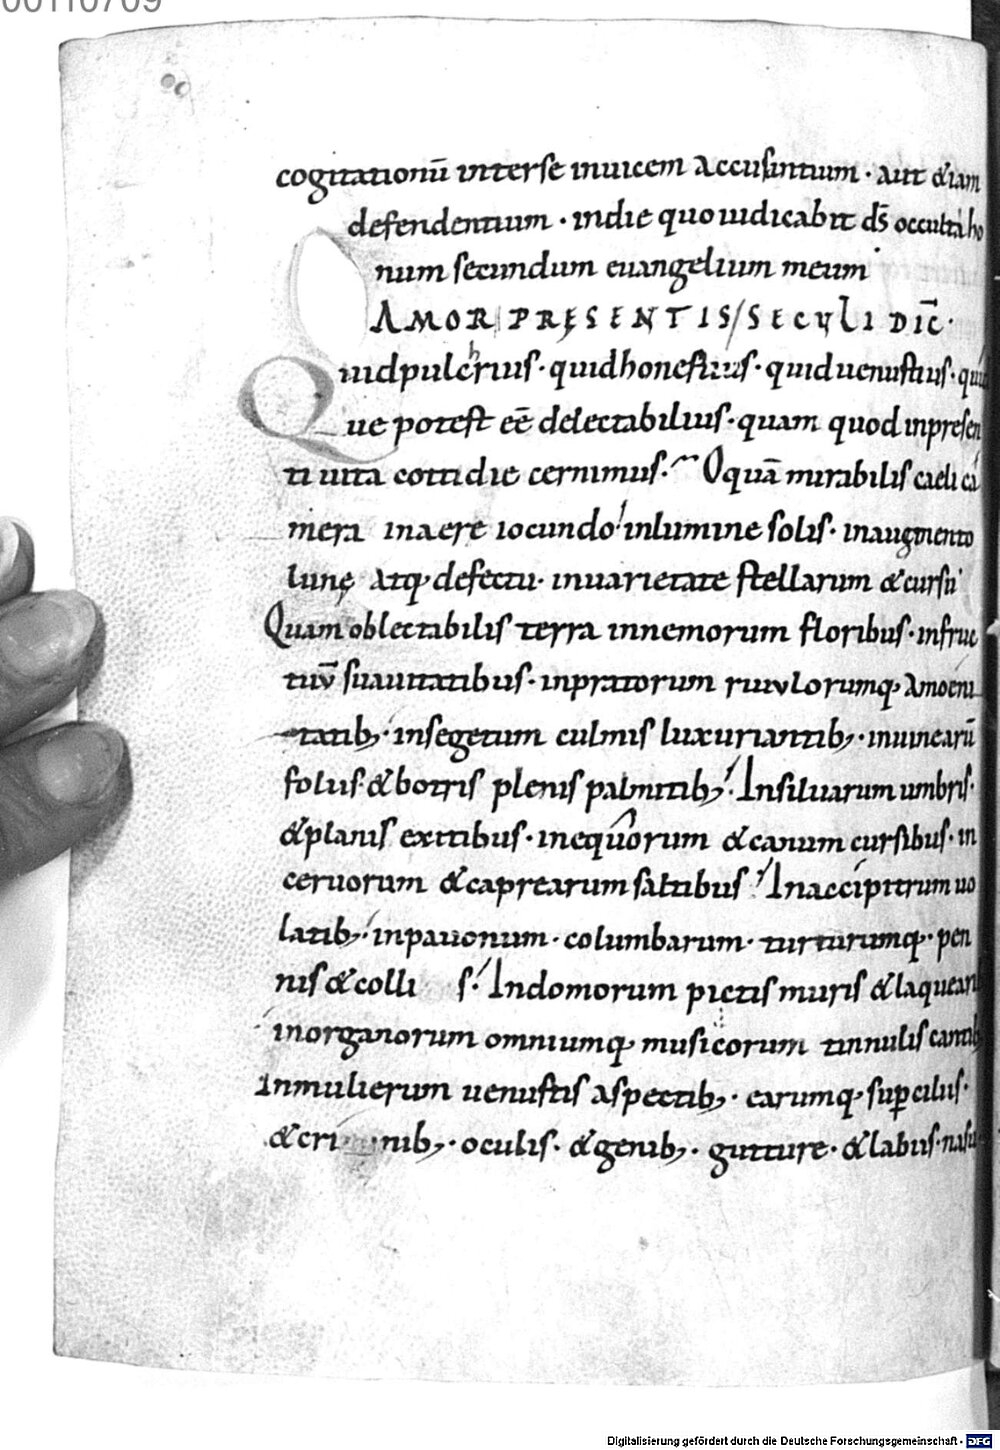 cogitationū interse inuicem accusintium · aut &iam
defendentium · indie quo iudicabit d̄s occulta ho
num secundum euangelium meum
AMOR PRESENTIS SECULI DIC̄·
Quid pulcrius · quid honestius · quid uenustius ·
Que potest eē delectabilius · quam quod inpresen
ti uita cottidie cernimus · O quā mirabilis caeli ca
mera inaere iocundo inlumine solis · inaugmento
lunę atq; defectu · inuarietate stellarum & cursu
Quam oblectabilis terra innemorum floribus · infruc
tuū suauitatibus · inpratorum riuulorumq; amoeni
tatib; insegetum culmis luxuriantib; · inuinearū
foliis · & botris plenis palmitib; Insiluarum umbris ·
& planis exitibus · inequorum & canum cursibus · in
ceruorum & caprearum saltibus Inaccipitrum uo
latib; inpauonum · columbarum · turturumq; · pen
nis & colli s · Indomorum pictis muris & laquearib
inorganorum omniumq; musicorum tinnulis cantib;
Inmulierum uenustis aspectib; · earumq; suꝑciliis ·
& cri nib; · oculis · & genib; · gutture · & labiis · nasu
00110709
Digitalisierung gefördert durch die Deutsche Forschungsgemeinschaft - DFG